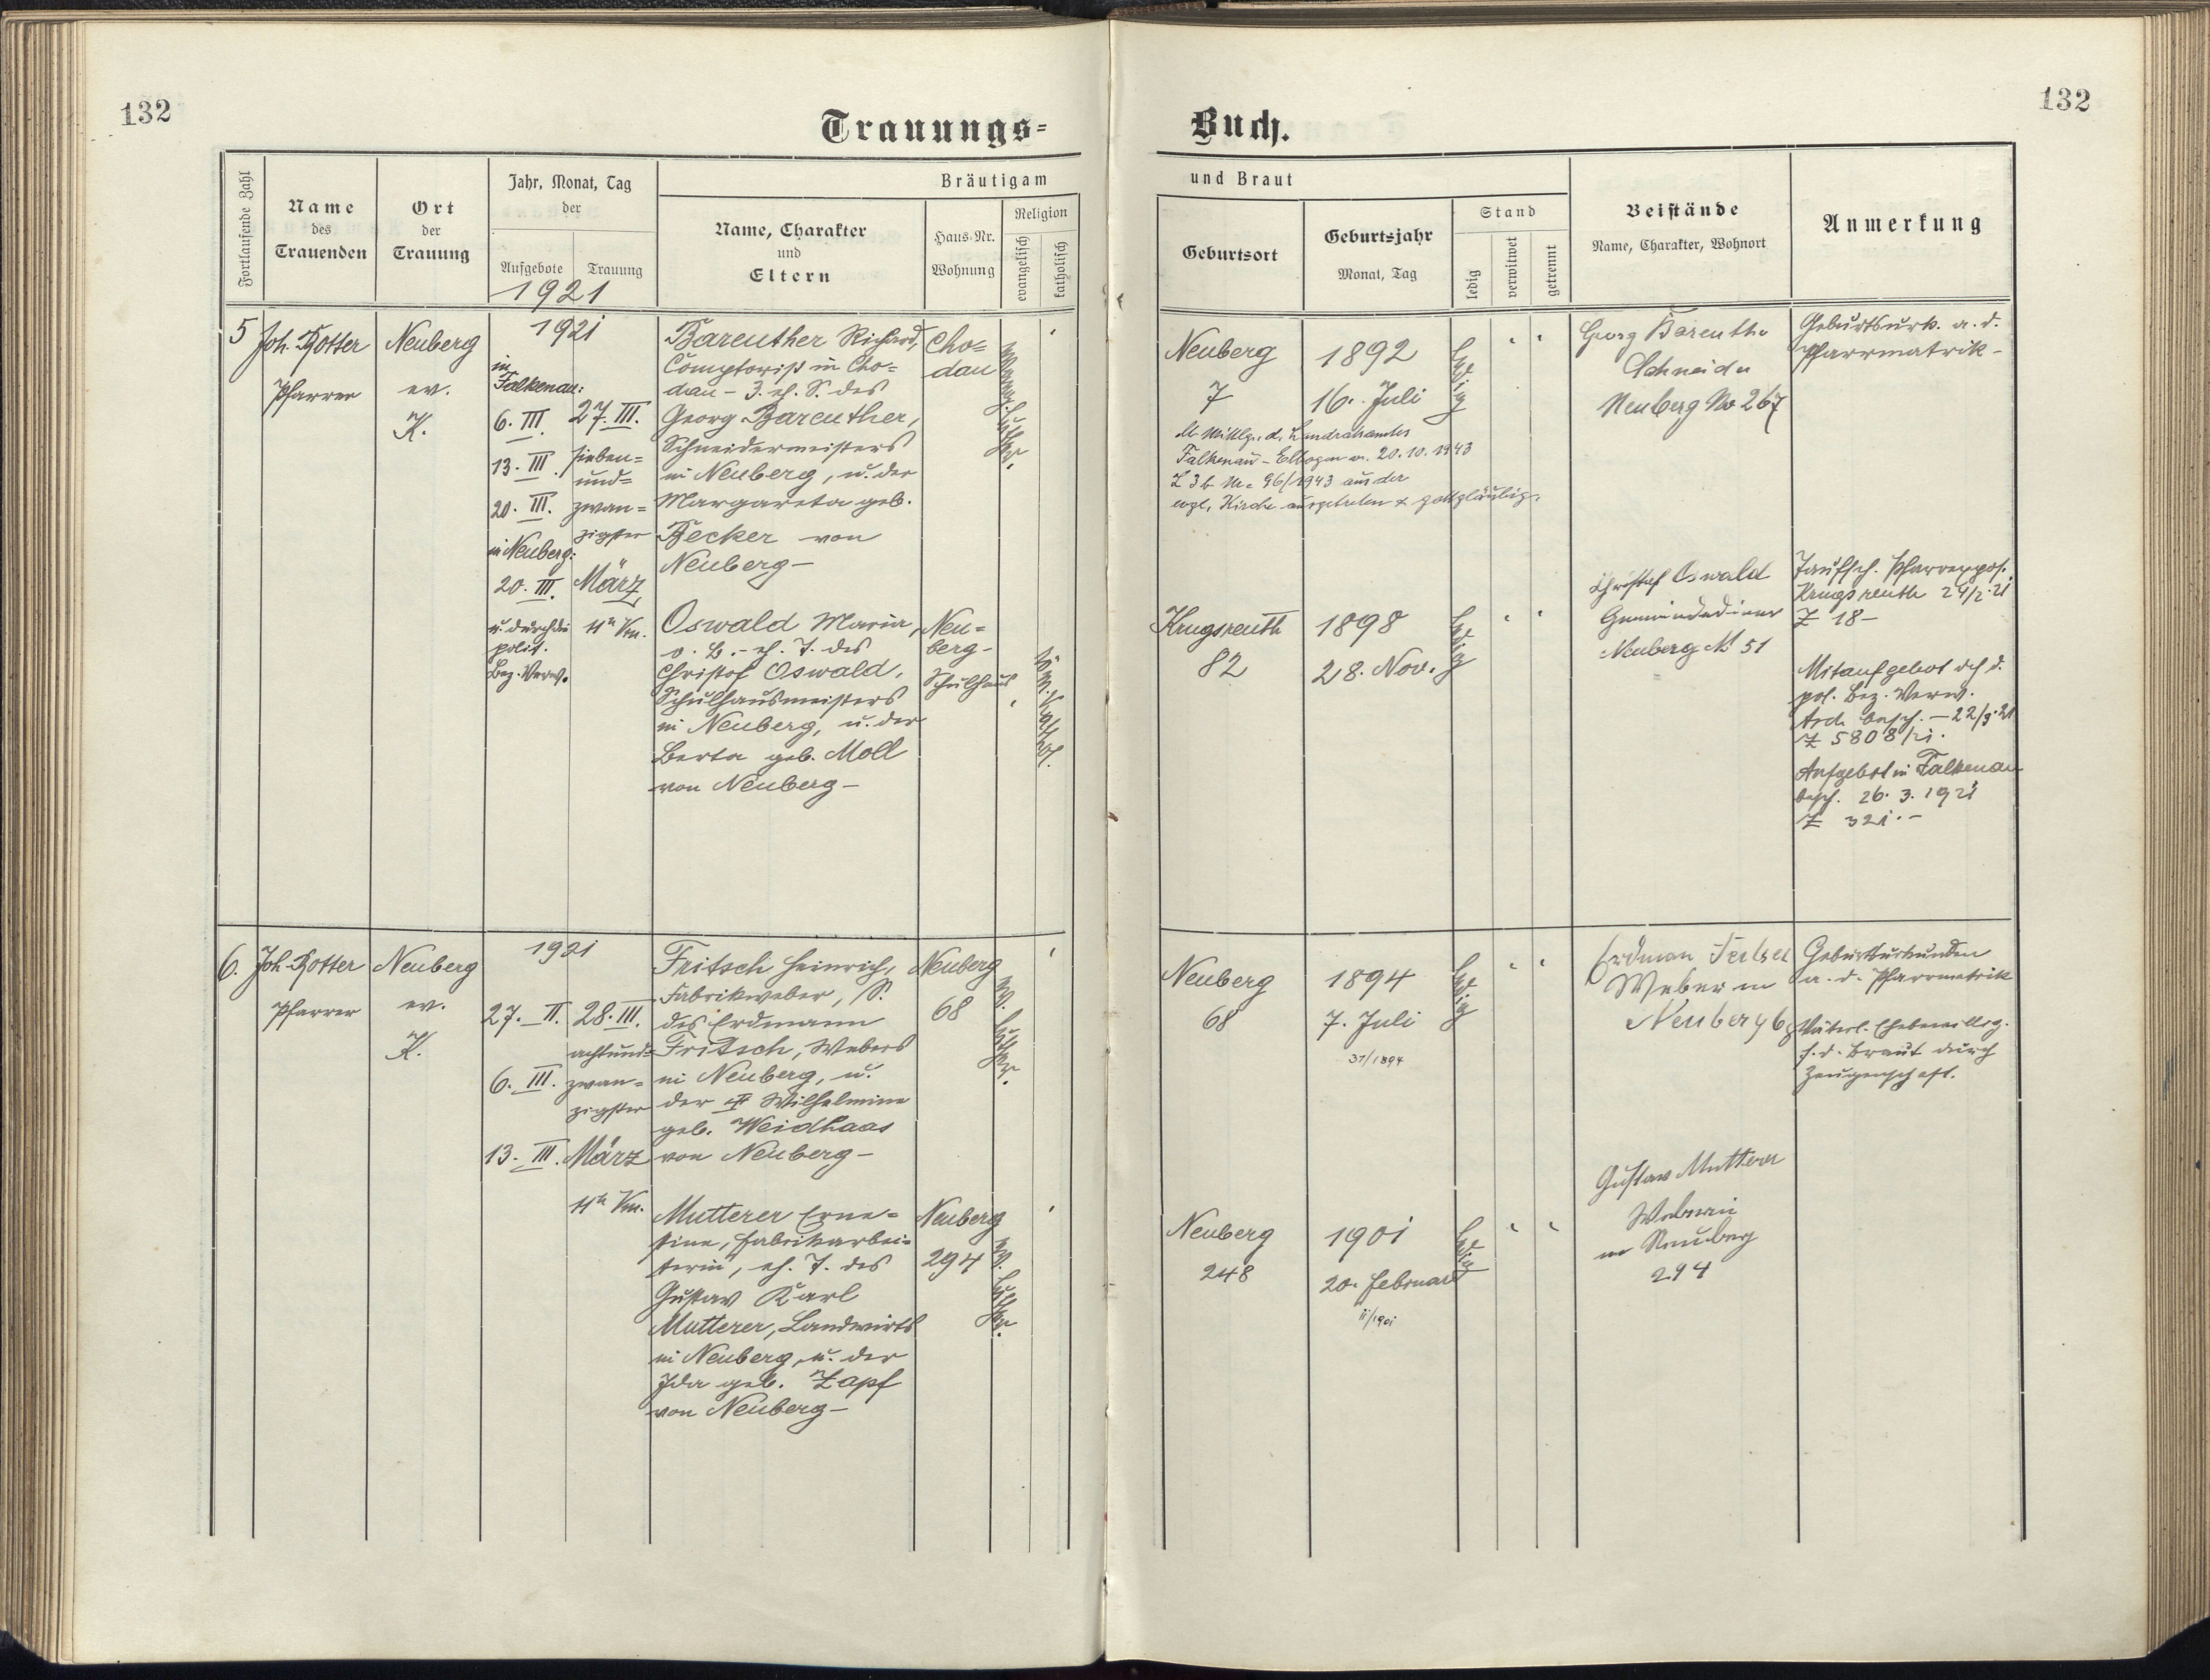 132
132
Trauungs=
Buch.
Fortlaufende Zahl
Name
des
Trauenden
Ort
der
Trauung
Jahr, Monat, Tag
der
Aufgebote
Trauung
1921
Bräutigam
Name, Charakter
und
Eltern
Haus-Nr.
Wohnung
Religion
evangelisch
katholisch
und Braut
Geburtsort
Geburtsjahr
Monat, Tag
Stand
ledig
verwitwet
getrennt
Beistände
Name, Charakter, Wohnort
Anmerkung
5
Joh. Rotter
Pfarrer
Neuberg
ev.
K.
1921
in
Falkenau:
6. III.
13. III.
20. III.
in Neuberg:
20. III.
u. durch die
polit.
Bez. Verw.
27. III.
sieben=
und=
zwan=
zigster
März,
11h Vm.
Bareuther Richard,
Comptorist in Cho=
dau – 3. eh. S. des
Georg Bareuther,
Schneidermeisters
in Neuberg, u. der
Margareta geb.
Becker von
Neuberg –
Cho=
dau
Neuberg
7
1892
16. Juli
ledig
Georg Bareuther
Schneider
Neuberg No 267
Geburtsurk. a. d.
Pfarrmatrik –
lt. Mittlg. d. Landratsamtes
Falkenau – Elbogen v. 20.10.1943
Z 3b Nr. 96/1943 aus der
evgl. Kirche ausgetreten & gottgläubig.
Oswald Maria,
o. B. – eh. T. des
Christof Oswald,
Schulhausmeisters
in Neuberg, u. der
Berta geb. Moll
von Neuberg –
Neu=
berg –
Schulhaus
röm. kathol.
Krugsreuth
82
1898
28. Nov.
ledig
Christof Oswald
Gemeindediener
Neuberg No 51
Taufsch. Pfarrexpos.
Krugsreuth 24/2.21
Z 18 –
Mitaufgebot dch d.
pol. Bez. Verw.
Asch besch. – 22/3.21
Z 5808/21.
Aufgebot in Falkenau
besch. 26. 3. 1921
Z 321. –
6.
Joh. Rotter
Pfarrer
Neuberg
ev.
K.
1921
27. II.
6. III.
13. III.
28. III.
achtund=
zwan=
zigster
März
11h Vm.
Fritsch Heinrich,
Fabrikweber, S.
des Erdmann
Fritsch, Webers
in Neuberg, u.
der Wilhelmine
geb. Weidhaas
von Neuberg –
Neuberg
68
ev. luther.
Neuberg
68
1894
7. Juli
31/1894
ledig
Erdman
Weber in
Neuberg 68
Geburtsurkunden
a. d. Pfarrmatrik
Väterl. Ehebewillig.
f. d. Braut durch
Zeugenschaft.
Mutterer Erne=
stine, Fabrikarbei=
terin, eh. T. des
Gustav Karl
Mutterer, Landwirts
in Neuberg, u. der
Ida geb. Zapf
von Neuberg –
Neuberg
294
ev. luther.
Neuberg
248
1901
20. Februar
11/1901
ledig
Gustav Mutterer
in Neuberg
294